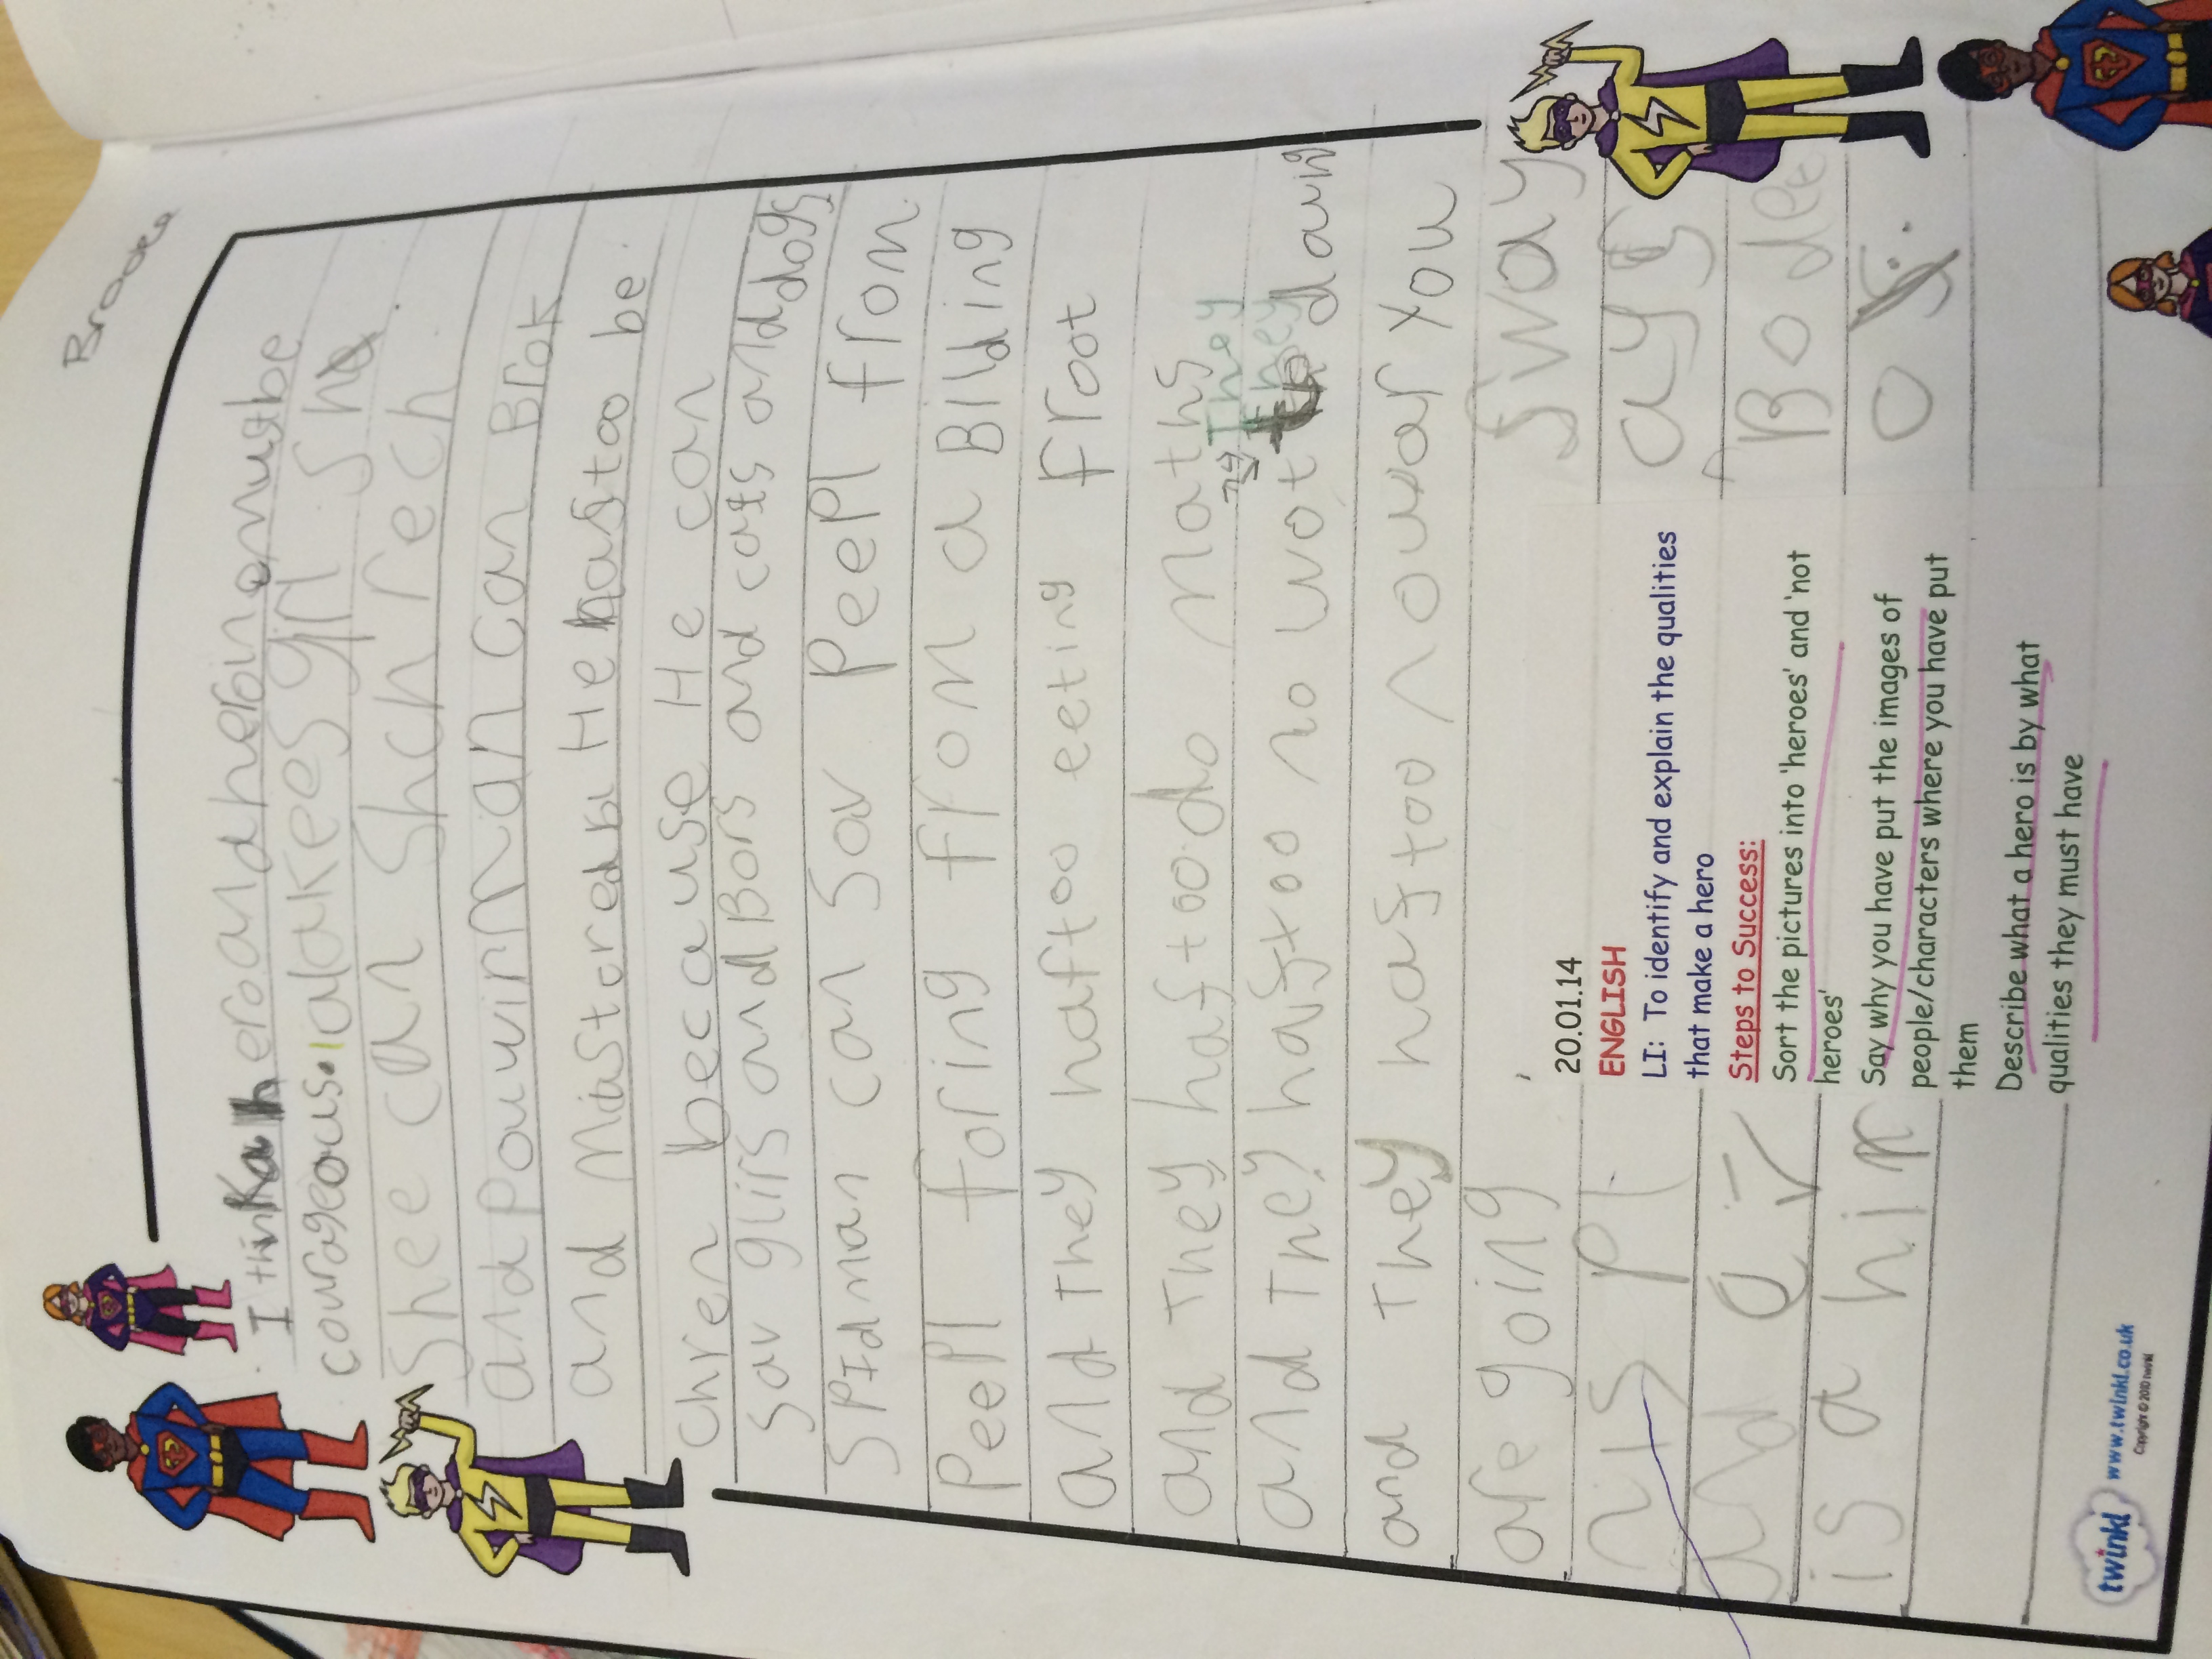 Brooke
I think a heroandheroin mustbe
courageous. I alakees girl
Shee can Shch rech
and Pouwirman can Brak
and Mastoredabl He hastoo be.
Chren because He can
Sav glirs and Bors and cats and dogs
SPIdman can Sav PeePl from
PeePl foring from a Bilding
and They haftoo eeting froot
and They haftoo do Maths
They
and They haftoo no wot They dawing
and They haftoo nouwar You
are going Sway
nis pl ays
and Bodee
is a hir o
20.01.14
ENGLISH
LI: To identify and explain the qualities
that make a hero
Steps to Success:
Sort the pictures into 'heroes' and 'not
heroes'
Say why you have put the images of
people/characters where you have put
them
Describe what a hero is by what
qualities they must have
twinkl www.twinkl.co.uk
Copyright © 2010 twinkl